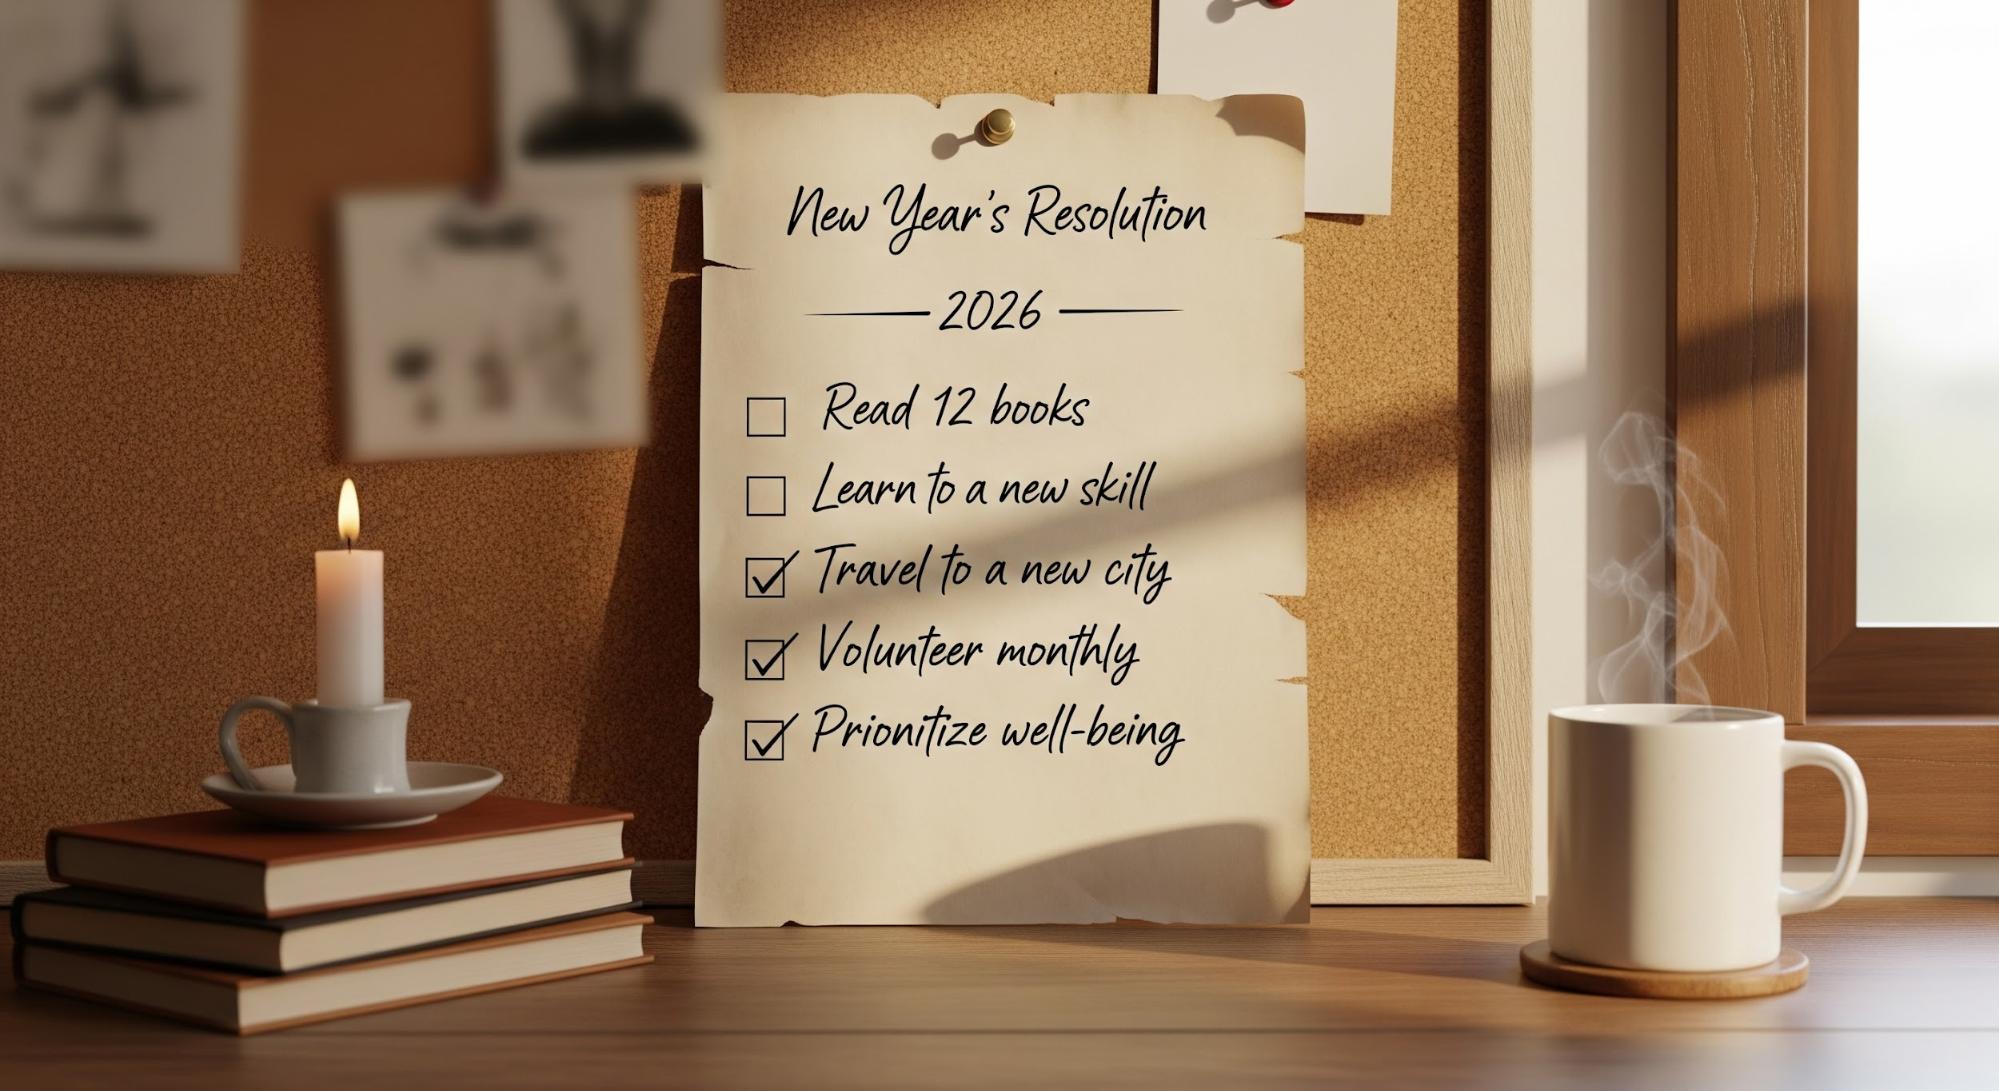 New Year's Resolution
2026
Read 12 books
Learn to a new skill
Travel to a new city
Volunteer monthly
Prionitize well-being